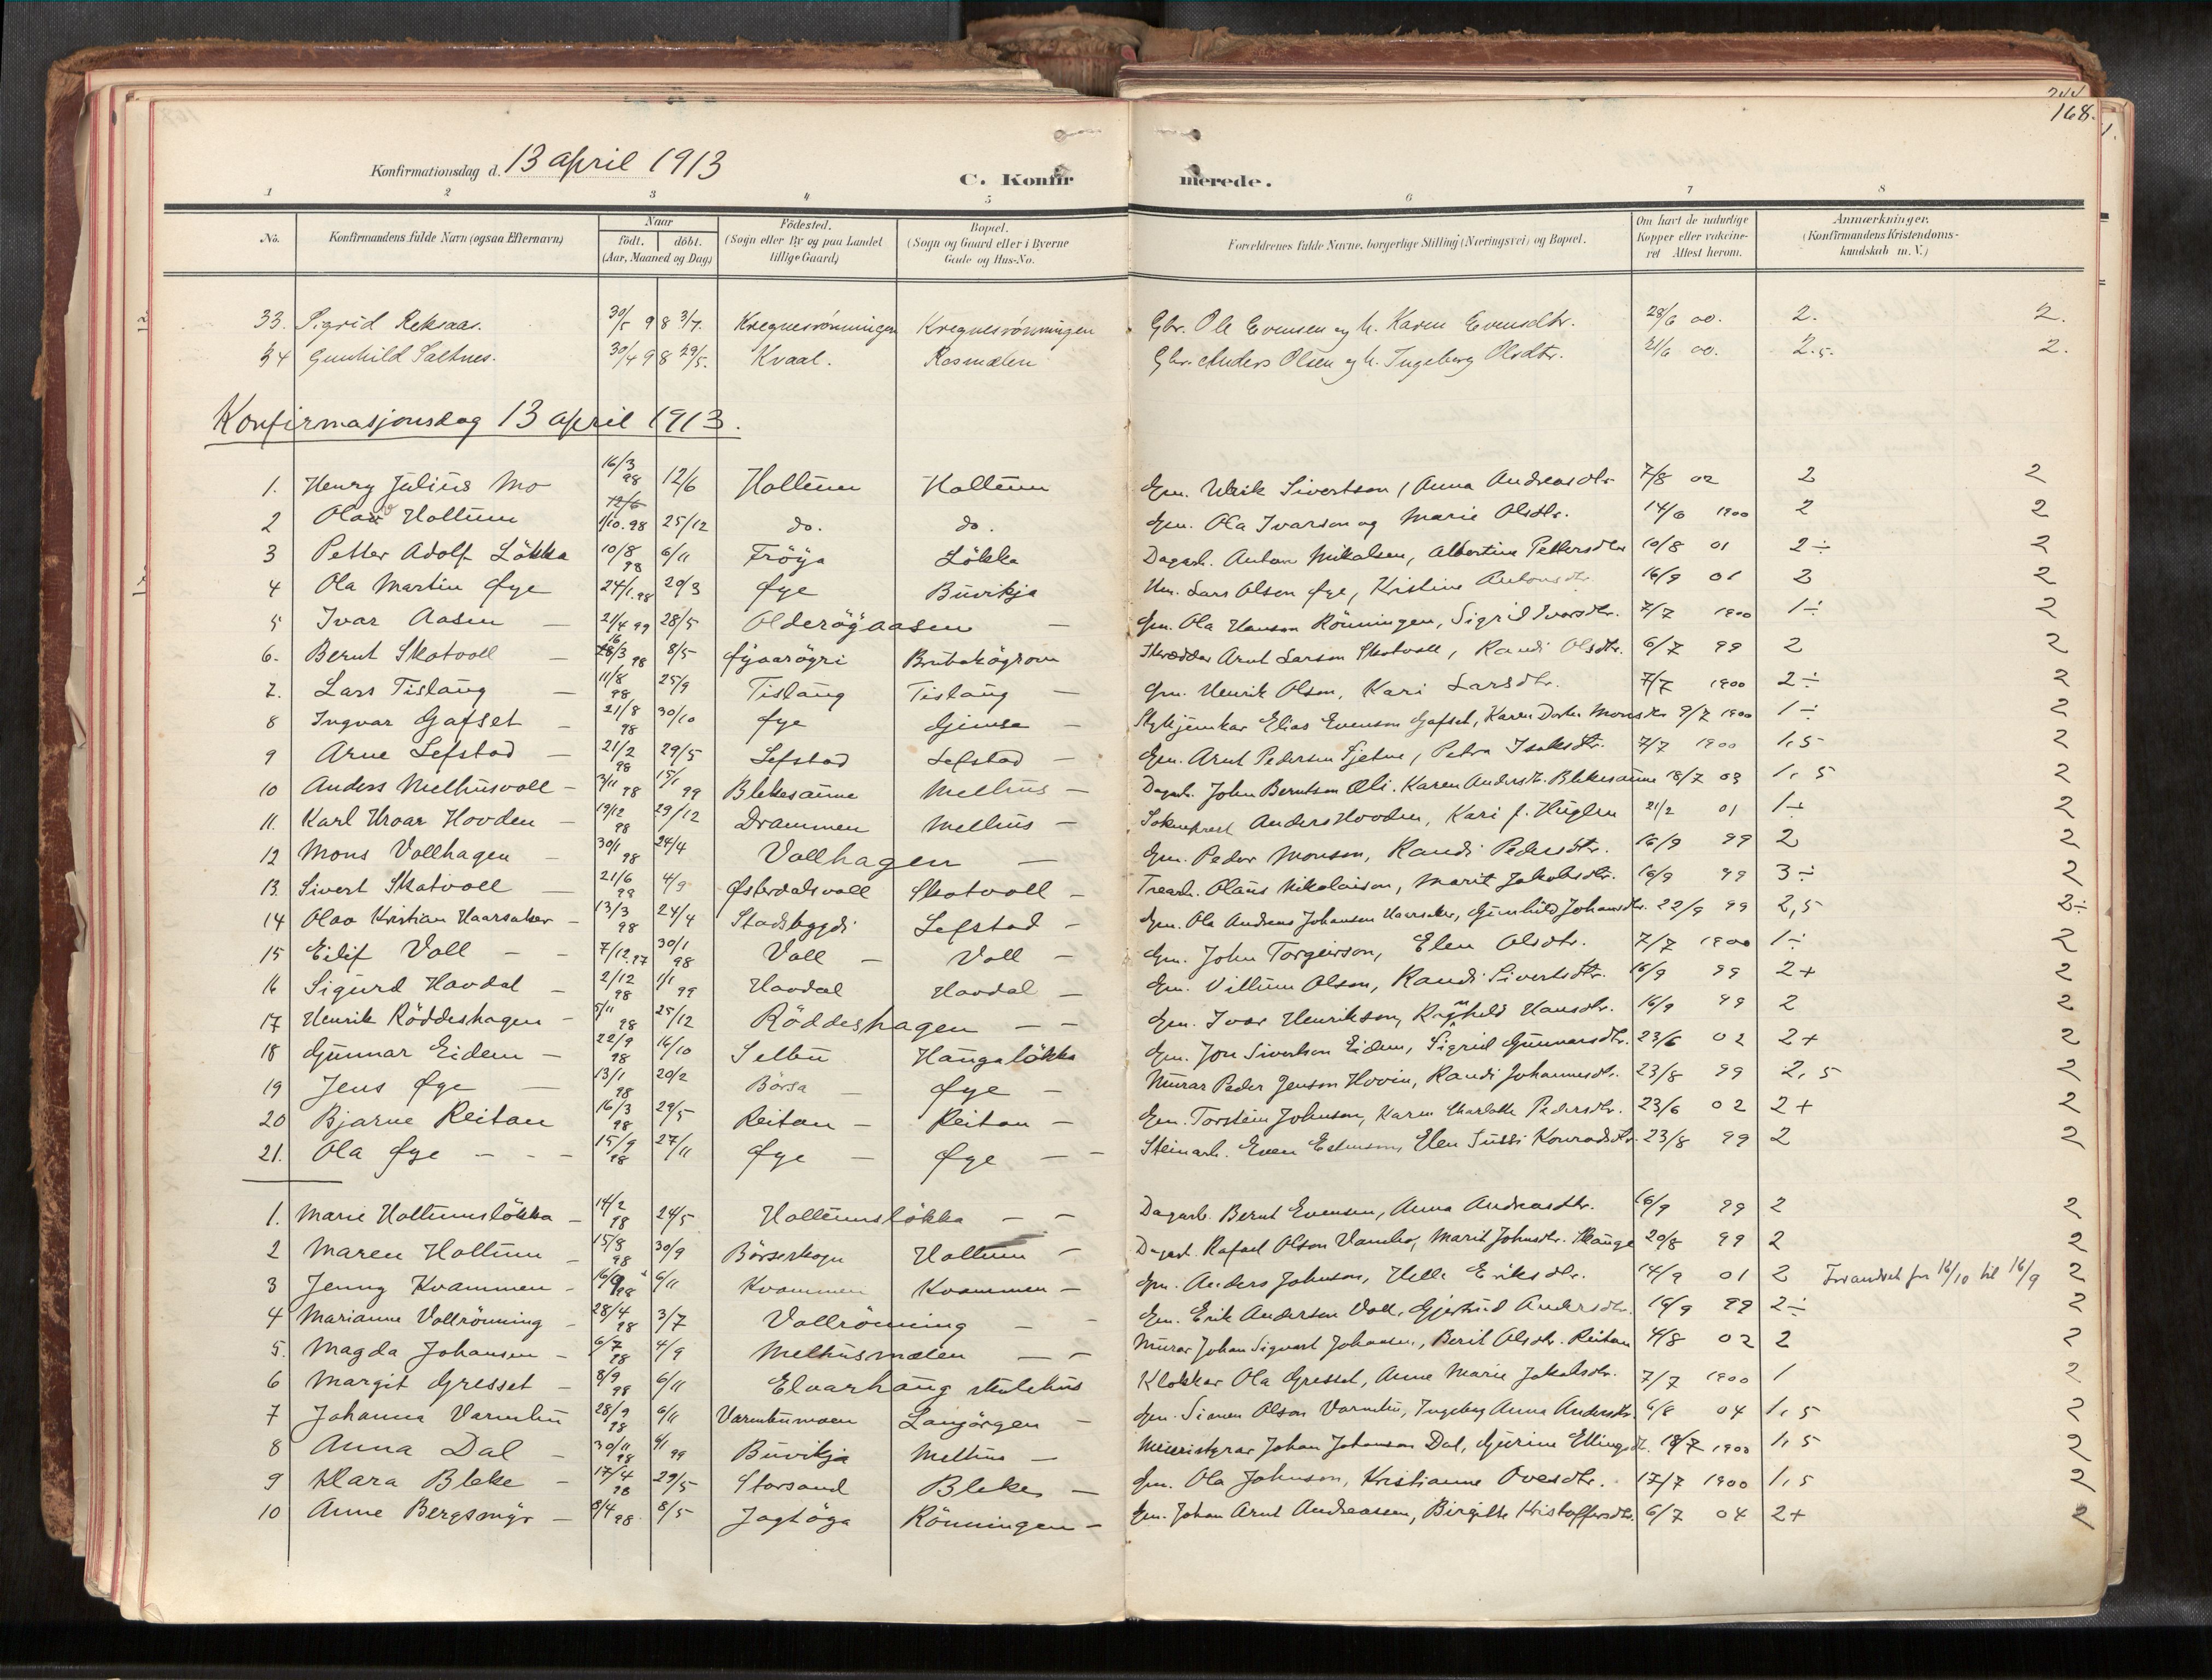 244
168.
Konfirmationsdag d. 13 april 1913
C. Konfirmerede.
1 2 3 4 5 6 7 8
No. Konfirmandens fulde Navn (ogsaa Efternavn) Naar födt. döbt. (Aar, Maaned og Dag) Födested. (Sogn eller By og paa Landet tillige Gaard) Bopæl. (Sogn og Gaard eller i Byerne Gade og Hus-No. Forældrenes fulde Navne, borgerlige Stilling (Næringsvei) og Bopæl. Om havt de naturlige Kopper eller vakcineret Attest herom. Anmærkninger. (Konfirmandens Kristendomskundskab m. V.)
33. Sigrid Reksaas. 30/5 98 3/7. Kregnesrönningen Kregnesrönningen Gbr. Ole Evensen og h. Karen Evensdtr. 28/6 00. 2. 2.
34 Gunhild Saltnes. 30/4 98 29/5. Kvaal. Rosmælen Gbr. Anders Olsen og h. Ingeborg Olsdtr. 21/6 00. 2.5. 2.
Konfirmasjonsdag 13 april 1913.
1. Henry Julius Mo 16/3 98 12/6 Hollum Hollum Gm. Ulrik Sivertson, Anna Andreasdtr 7/8 02 2 2
2 Olav Hollum 12/6 1/10.98 25/12 do. do. Gm. Ola Ivarson og Marie Olsdtr. 14/6 1900 2 2
3 Petter Adolf Lökka 10/8 98 6/11 Fröya Lökka Dagarb. Anton Mikalsen, Albertine Pettersdtr 10/8 01 2÷ 2
4 Ola Martin Øye 24/1.98 20/3 Øye Buvikja Um. Lars Olson Øye, Kristine Antonsdtr. 16/9 01 2 2
5 Ivar Aasen — 21/4 99 28/5 Olderöyaasen — Gm. Ola Hanson Rönningen, Sigrid Ivarsdtr. 7/7 1900 1÷ 2
6. Bernt Skotvoll — 16 28/3 98 8/5 Øyaarögri Brubakögrova Skrædder Arnt Larson Skotvoll, Randi Olsdtr. 6/7 99 2 2
7. Lars Tislaug — 11/8 98 25/9 Tislaug Tislaug — Gm. Henrik Olson, Kari Larsdtr. 7/7 1900 2÷ 2
8 Ingvar Gafset — 21/8 98 30/10 Øye Gimse — Elias Evenson Gafset, Karen Dortea Monsdtr 9/7 1900 1÷ 2
9 Arne Lefstad — 21/2 98 29/5 Lefstad Lefstad — Gm. Arnt Pederson Fjetne, Petra Isaksdtr. 7/7 1900 1,5 2
10 Anders Melhusvoll — 3/11 98 15/1 99 Blekesaune Melhus — Dagarb. John Berntson Øli. Karen Andersdtr. Blekesaune 18/7 03 1,5 2
11. Karl Hroar Hovden — 19/12 98 29/12 Drammen Melhus — Sokneprest Anders Hovden, Kari f. Huglen 21/2 01 1÷ 2
12 Mons Vollhagen — 30/1 98 24/4 Vollhagen — Gm. Peder Monson, Randi Pedersdtr. 16/9 99 2 2
13 Sivert Skatvoll — 21/6 98 4/9 Østerdalsvoll Skotvoll — Trearb. Olaus Nikolaison, Marit Jakobsdtr. 16/9 99 3÷ 2
14 Olav Kristian Haarsaker — 13/3 98 24/4 Stadsbygdi Lefstad — Gm. Ola Andreas Johanson Haarsaker, Gunhild Johansdtr. 22/9 99 2,5 2÷
15 Eilif Voll — — 7/12.97 30/1 98 Voll — Voll — Gm. John Torgeirson, Elen Olsdtr. 7/7 1900 1÷ 2
16 Sigurd Havdal — 2/12 98 1/1 99 Havdal Havdal — Gm. Villum Olson, Randi Sivertsdtr. 16/9 99 2+ 2
17 Henrik Röddeshagen — 5/11 98 25/12 Röddeshagen — — Gm. Ivar Henrikson, Ragnhild Hansdtr. 16/9 99 2 2
18 Gunnar Eidem — 22/9 98 16/10 Selbu Haugalökka Gm. Jon Sivertson Eidem, Sigrid Gunnarsdtr. 23/6 02 2+ 2
19 Jens Øye — 13/1 98 20/2 Börsa — Øye — Murar Peder Jenson Hovin, Randi Johannesdtr. 23/8 99 2,5 2
20 Bjarne Reitan 16/3 98 29/5 Reitan — Reitan — Gm. Torstein Johnson, Karen Charlotte Pedersdtr. 23/6 02 2+ 2
21. Ola Øye — — — 15/9 98 27/11 Øye — Øye — — Steinarb. Even Estenson, Elen Sussi Konradsdtr. 23/8 99 2 2
1. Marie Hollumslökka — 14/2 98 24/5 Hollumslökka — — Dagarb. Bernt Evenson, Anna Andreasdtr. 16/9 99 2 2
2 Maren Hollum — 15/8 98 30/9 Börseskogn Hollum — Dagarb. Rafael Olson, Marit Johnsdtr. Skauge 20/8 99 2 2
3 Jenny Kvammen — 16/9 98 6/11 Kvammen Kvammen — Gm. Anders Johnson, Helle Eriksdtr. 14/9 01 2 Forandret fra 16/10 til 16/9 2
4 Marianne Vollrönning — 28/4 98 3/7 Vollrönning — — Gm. Erik Anderson Voll, Gjertrud Andersdtr. 16/9 99 2÷ 2
5. Magda Johansen — 6/7 98 4/9 Melhusmælen — — Murar Johan Sigvart Johansen, Berit Olsdtr. Reitan 4/8 02 2 2
6 Margit Gresset — 8/9 98 6/11 Elvarhaug skulehus Klokkar Ola Gresset, Anne Marie Jakobsdtr. 7/7 1900 1 2
7 Johanna Varmbu 28/9 98 6/11 Varmbumoen Langörgen — Gm. Simen Olson Varmbu, Ingeborg Anna Andersdtr. 6/8 04 1,5 2
8 Anna Dal — 30/11 98 6/1 99 Buvikja Melhus — Meieristyrar Johan Johanson Dal, Gurine Ellingsdtr. 18/7 1900 1,5 2
9 Klara Bleke — 17/4 98 29/5 Storsand Bleke — Gm. Ola Johnson, Kristianne Ovesdtr. 17/7 1900 1,5 2
10 Anne Bergsmyr — 8/4 98. 8/5 Jagtöya Rönningen — Gm. Johan Arnt Andreassen, Birgitte Kristoffersdtr. 6/7 04 2+ 2